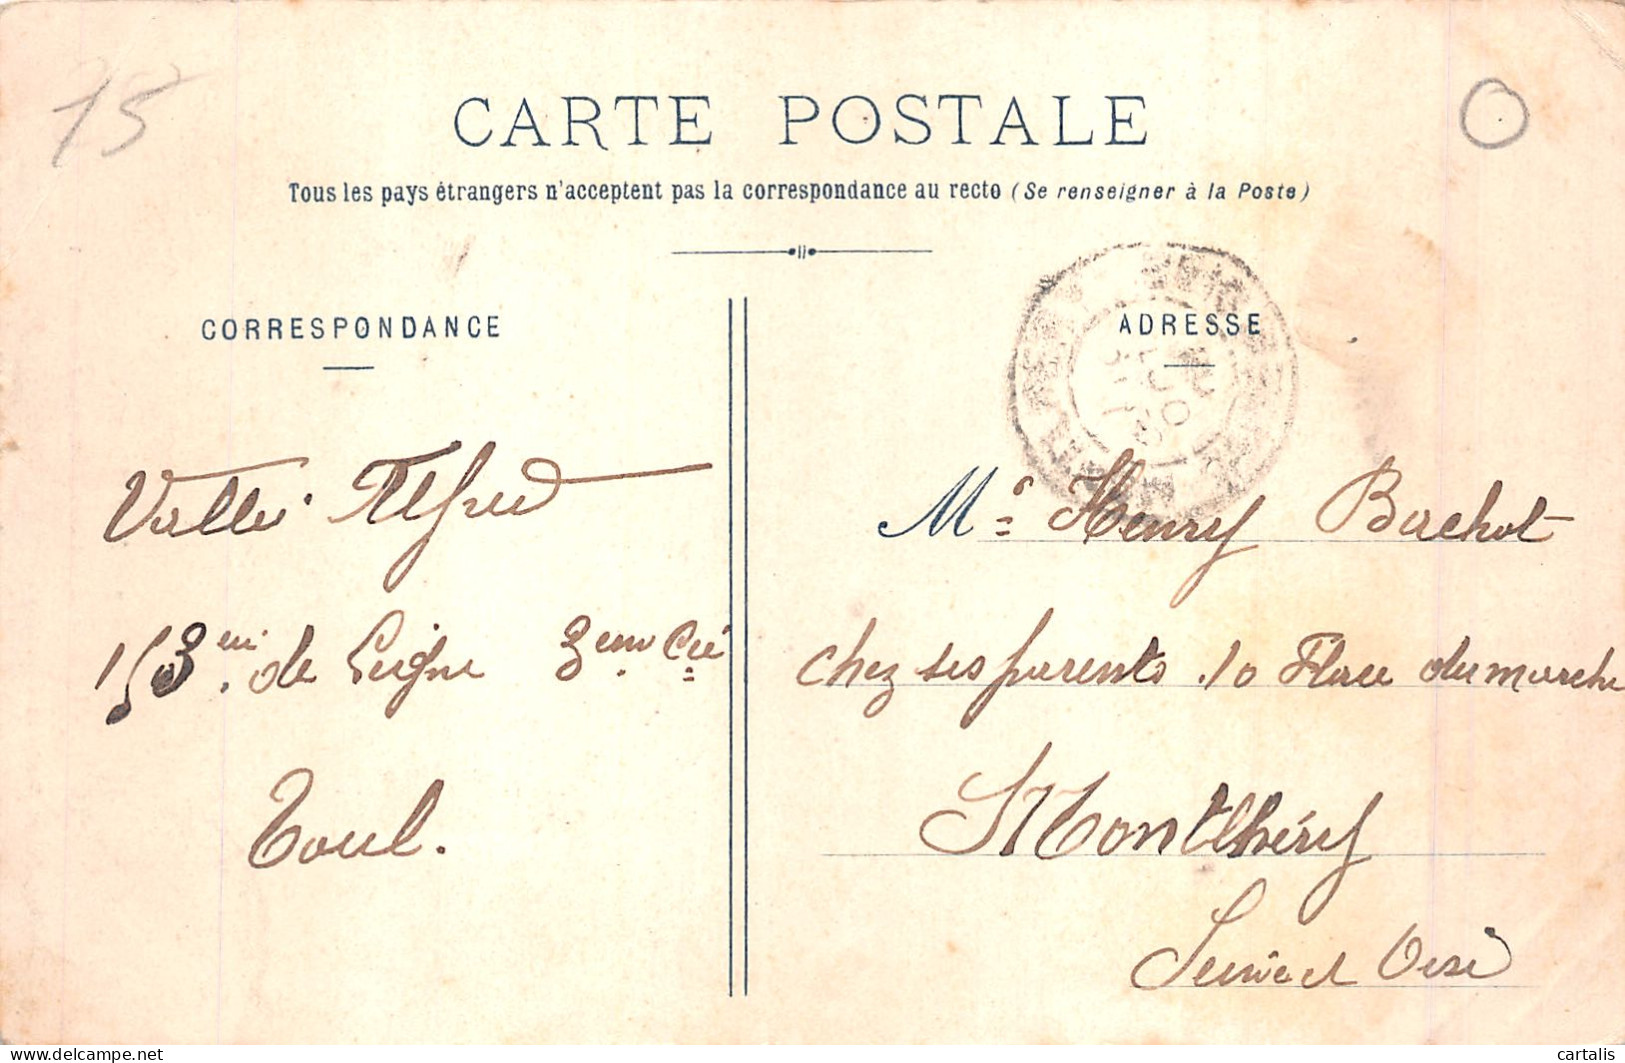 75
CARTE POSTALE
Tous les pays étrangers n'acceptent pas la correspondance au recto (Se renseigner à la Poste)
CORRESPONDANCE
Vallée Alfred
153eme de Ligne 3eme Cie
Toul.
ADRESSE
Mr Henry Bachot
chez ses parents 10 Place du marche
Montlhéry
Seine et Oise
delcampe.net
cartalis